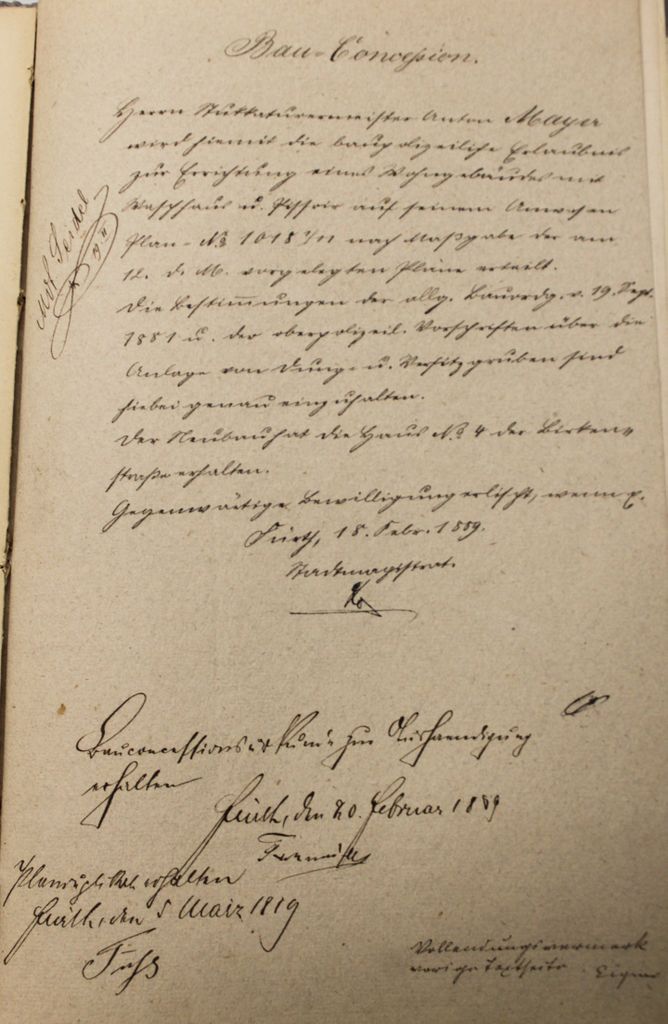 Bau-Concession.
Herrn Stukkaturermeister Anton Mayer
wird hiemit die baupolizeiliche Erlaubnis
zur Errichtung eines Wohngebäudes mit
Waschhaus u. Pissoir auf seinem Anwesen
Plan-No 1018 1/11 nach Maßgabe der am
12. d. M. vorgelegten Pläne erteilt.
Die Bestimmungen der allg. Bauordg. v. 19. Sept.
1881 u. der oberpolizeil. Vorschriften über die
Anlage von Dung- u. Versitzgruben sind
hiebei genau einzuhalten.
Der Neubau hat die Haus No 4 der Birken-
straße erhalten.
Gegenwärtige Bewilligung erlischt, wenn p.
Fürth, 18. Febr. 1889.
Stadtmagistrat.
Bauconcessionsurkunde zur Aushaendigung
erhalten
Fürth, den 20. Februar 1889
Planduplikat erhalten
Fürth, den 5 März 1889
Fuhs
Vollendungsvermerk
vorige Textseite